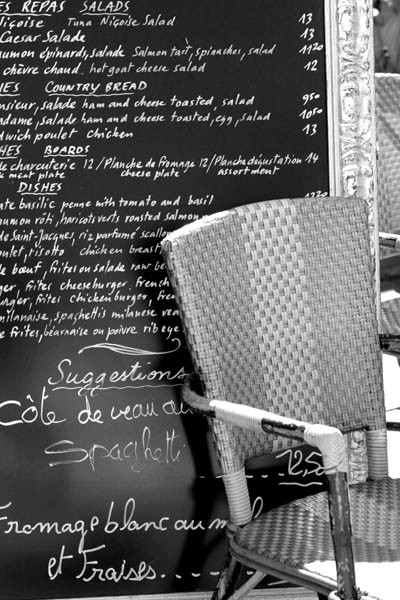 ES REPAS SALADS
içoise Tuna Niçoise Salad 13
Caesar Salade 13
aumon épinards, salade Salmon tart, spinaches, salad 11²⁰
chèvre chaud hot goat cheese salad 12
HES COUNTRY BREAD
nsieur, salade ham and cheese toasted, salad 9⁵⁰
adame, salade ham and cheese toasted, egg, salad 10⁵⁰
dwich poulet chicken 13
HES BOARDS
de charcuterie 12 / Planche de fromage 12 / Planche dégustation 14
k meat plate cheese plate assortment
DISHES
te basilic penne with tomato and basil 12²⁰
aumon rôti, haricots verts roasted salmon
de Saint-Jacques, riz parfumé scallo
oulet, risotto chicken breast
de bœuf, frites ou salade raw be
ger, frites cheeseburger, french
urger, frites chicken burger, fren
milanaise, spaghettis milanese vea
e frites, béarnaise ou poivre rib eye
Suggestions
Côte de veau au
Spaghetti
..... 12,50
Fromage blanc au m
et Fraises.....